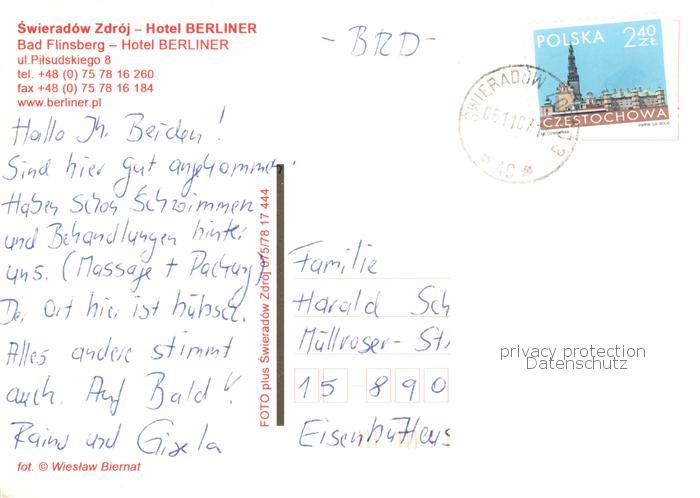 Świeradów Zdrój – Hotel BERLINER
Bad Flinsberg – Hotel BERLINER
ul.Piłsudskiego 8
tel. +48 (0) 75 78 16 260
fax +48 (0) 75 78 16 184
www.berliner.pl
- BRD -
POLSKA 2,40 ZŁ
CZĘSTOCHOWA
ŚWIERADÓW
Hallo Ihr Beiden!
Sind hier gut angekommen,
Haben schon Schwimmen
und Behandlungen hinter
uns. (Massage + Packung)
Der Ort hier ist hübsch.
Alles andere stimmt
auch. Auf Bald!
und Gisela
fot. © Wiesław Biernat
FOTO plus Świeradów Zdrój 075/78 17 444
Familie
Harald Sch
Müllroser- Str
15-890
Eisenhüttens
privacy protection
Datenschutz